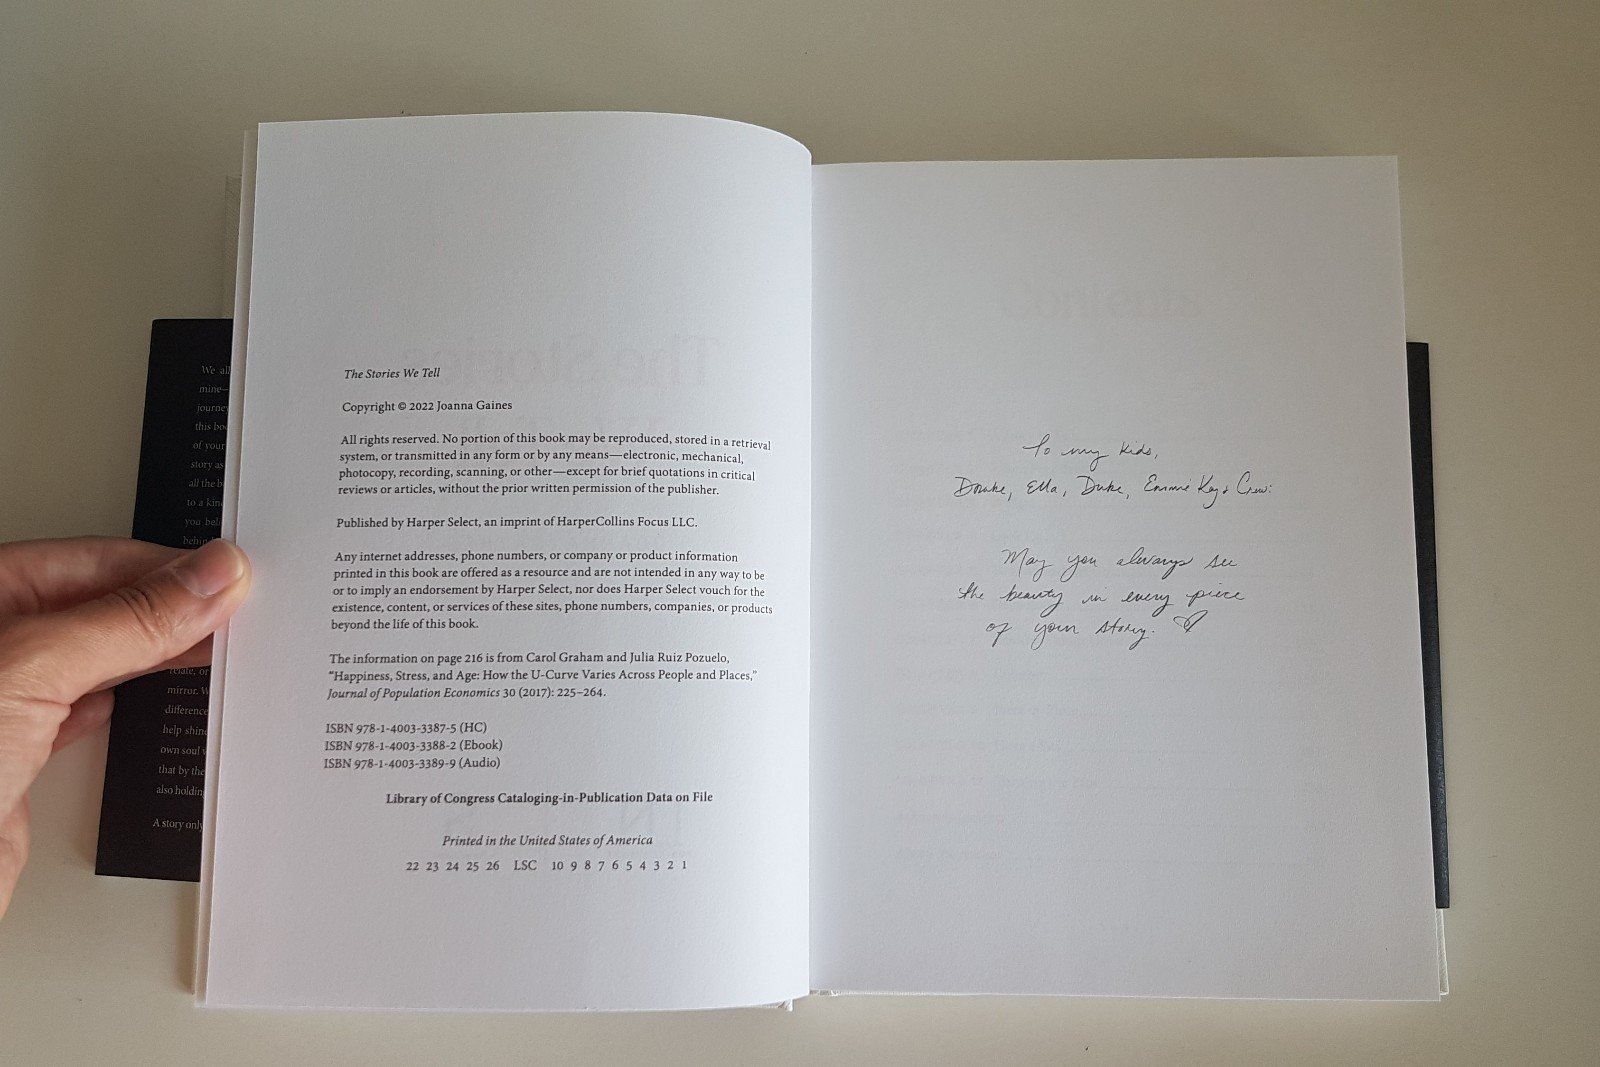 We all
mine—
journey
this
of your
story as
all the
to a
you
behind
relate, or
mirror. W
difference
help
own soul
that by the
also
A story only
The Stories We Tell
Copyright © 2022 Joanna Gaines
All rights reserved. No portion of this book may be reproduced, stored in a retrieval
system, or transmitted in any form or by any means—electronic, mechanical,
photocopy, recording, scanning, or other—except for brief quotations in critical
reviews or articles, without the prior written permission of the publisher.
Published by Harper Select, an imprint of HarperCollins Focus LLC.
Any internet addresses, phone numbers, or company or product information
printed in this book are offered as a resource and are not intended in any way to be
or to imply an endorsement by Harper Select, nor does Harper Select vouch for the
existence, content, or services of these sites, phone numbers, companies, or products
beyond the life of this book.
The information on page 216 is from Carol Graham and Julia Ruiz Pozuelo,
“Happiness, Stress, and Age: How the U-Curve Varies Across People and Places,”
Journal of Population Economics 30 (2017): 225–264.
ISBN 978-1-4003-3387-5 (HC)
ISBN 978-1-4003-3388-2 (Ebook)
ISBN 978-1-4003-3389-9 (Audio)
Library of Congress Cataloging-in-Publication Data on File
Printed in the United States of America
22 23 24 25 26 LSC 10 9 8 7 6 5 4 3 2 1
To my kids,
Drake, Ella, Duke, Emmie Kay & Crew:
May you always see
the beauty in every piece
of your story. ♡